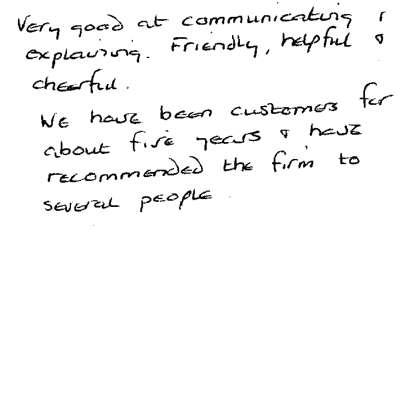 Very good at communicating &
explaining. Friendly, helpful &
cheerful.
We have been customers for
about five years & have
recommended the firm to
several people.